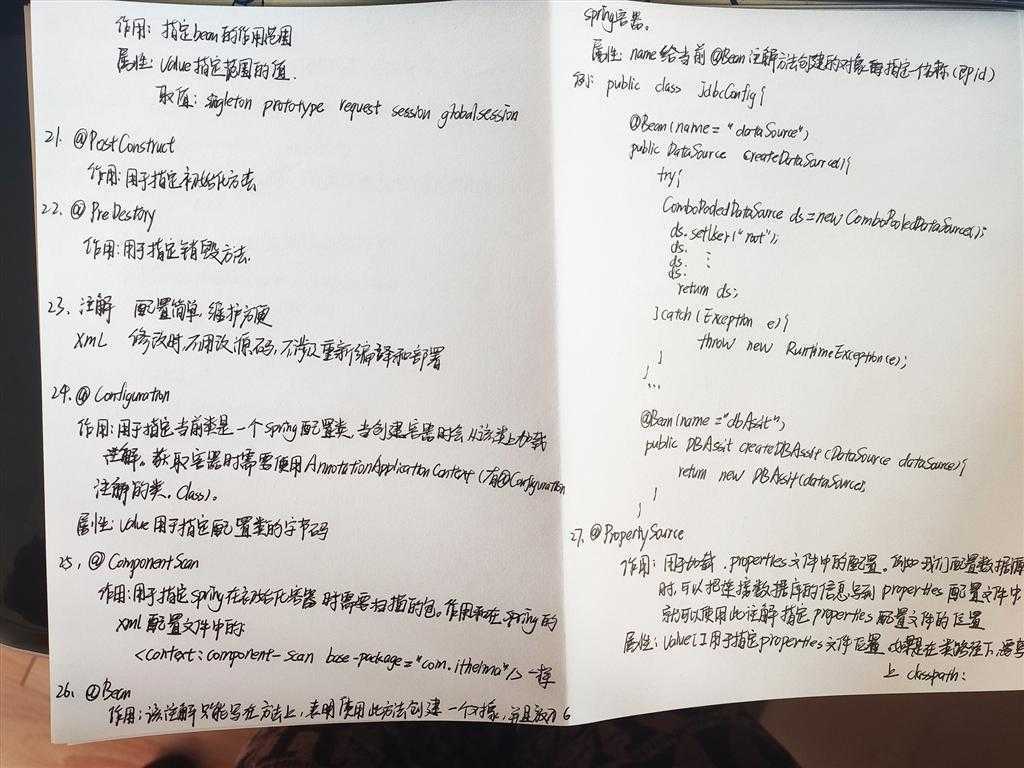 作用：指定bean的作用范围
属性：value指定范围的值.
取值：singleton prototype request session globalsession
21. @PostConstruct
作用：用于指定初始化方法
22. @PreDestory
作用：用于指定销毁方法.
23. 注解 配置简单，维护方便
XML 修改时，不用改源码，不涉及重新编译和部署
24. @Configuration
作用：用于指定当前类是一个spring配置类，当创建容器时会从该类上加载
注解。获取容器时需要使用AnnotationApplicationContext(有@Configuration
注解的类.class)。
属性：value用于指定配置类的字节码
25. @ComponentScan
作用：用于指定spring在初始化容器时需要扫描的包。作用和在spring的
xml配置文件中的
<context:component-scan base-package="com.itheima"/>一样
26. @Bean
作用：该注解只能写在方法上，表明使用此方法创建一个对象，并且放入
spring容器。
属性：name给当前@Bean注解方法创建的对象指定一个名称(即id)
例：public class JdbcConfig{
@Bean(name="dataSource")
public DataSource createDataSource(){
try{
ComboPooledDataSource ds=new ComboPooledDataSource();
ds.setUser("root");
ds.
ds. ⋮
ds.
return ds;
}catch(Exception e){
throw new RuntimeException(e);
}
}
...
@Bean(name="dbAssit")
public DBAssit createDBAssit(DataSource dataSource){
return new DBAssit(dataSource);
}
}
27. @PropertySource
作用：用于加载.properties文件中的配置。例如我们配置数据源
时，可以把连接数据库的信息写到properties配置文件中，
就可以使用此注解指定properties配置文件的位置
属性：value[]用于指定properties文件位置.如果是在类路径下，需要
上classpath: